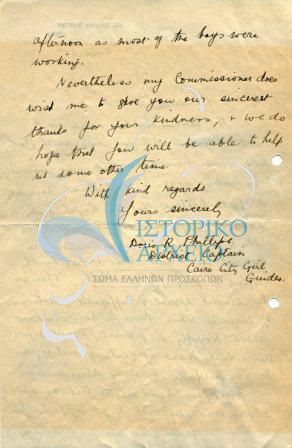 afternoon as most of the boys were
working.
Nevertheless my Commissioner does
wish me to give you our sincerest
thanks for your kindness, & we do
hope that you will be able to help
us some other time.
With kind regards
Yours sincerely
Doris R. Phillips.
District Captain
Cairo City Girl
Guides.
ΙΣΤΟΡΙΚΟ
ΑΡΧΕΙΟ
ΣΩΜΑ ΕΛΛΗΝΩΝ ΠΡΟΣΚΟΠΩΝ